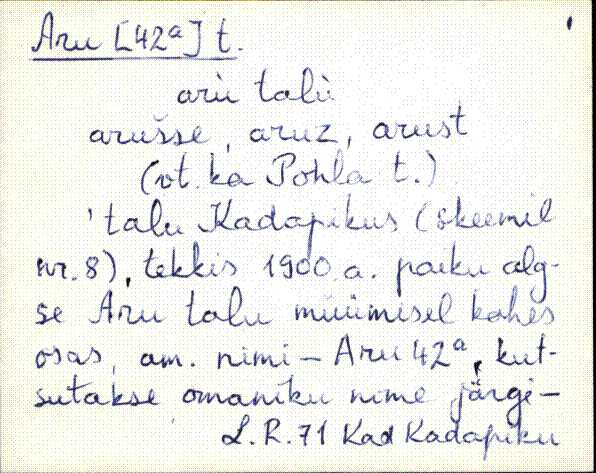 Aru [42ª] t.
aru̇̀ talu̇̀
arušse, aruz, arust
(vt. ka Pohla t.)
'talu Kadapikus (skeemil
nr. 8), tekkis 1900. a. paiku alg-
se Aru talu müümisel kahes
osas, am. nimi – Aru 42ª, kut-
sutakse omaniku nime järgi –
L. R. 71 Kad Kadapiku